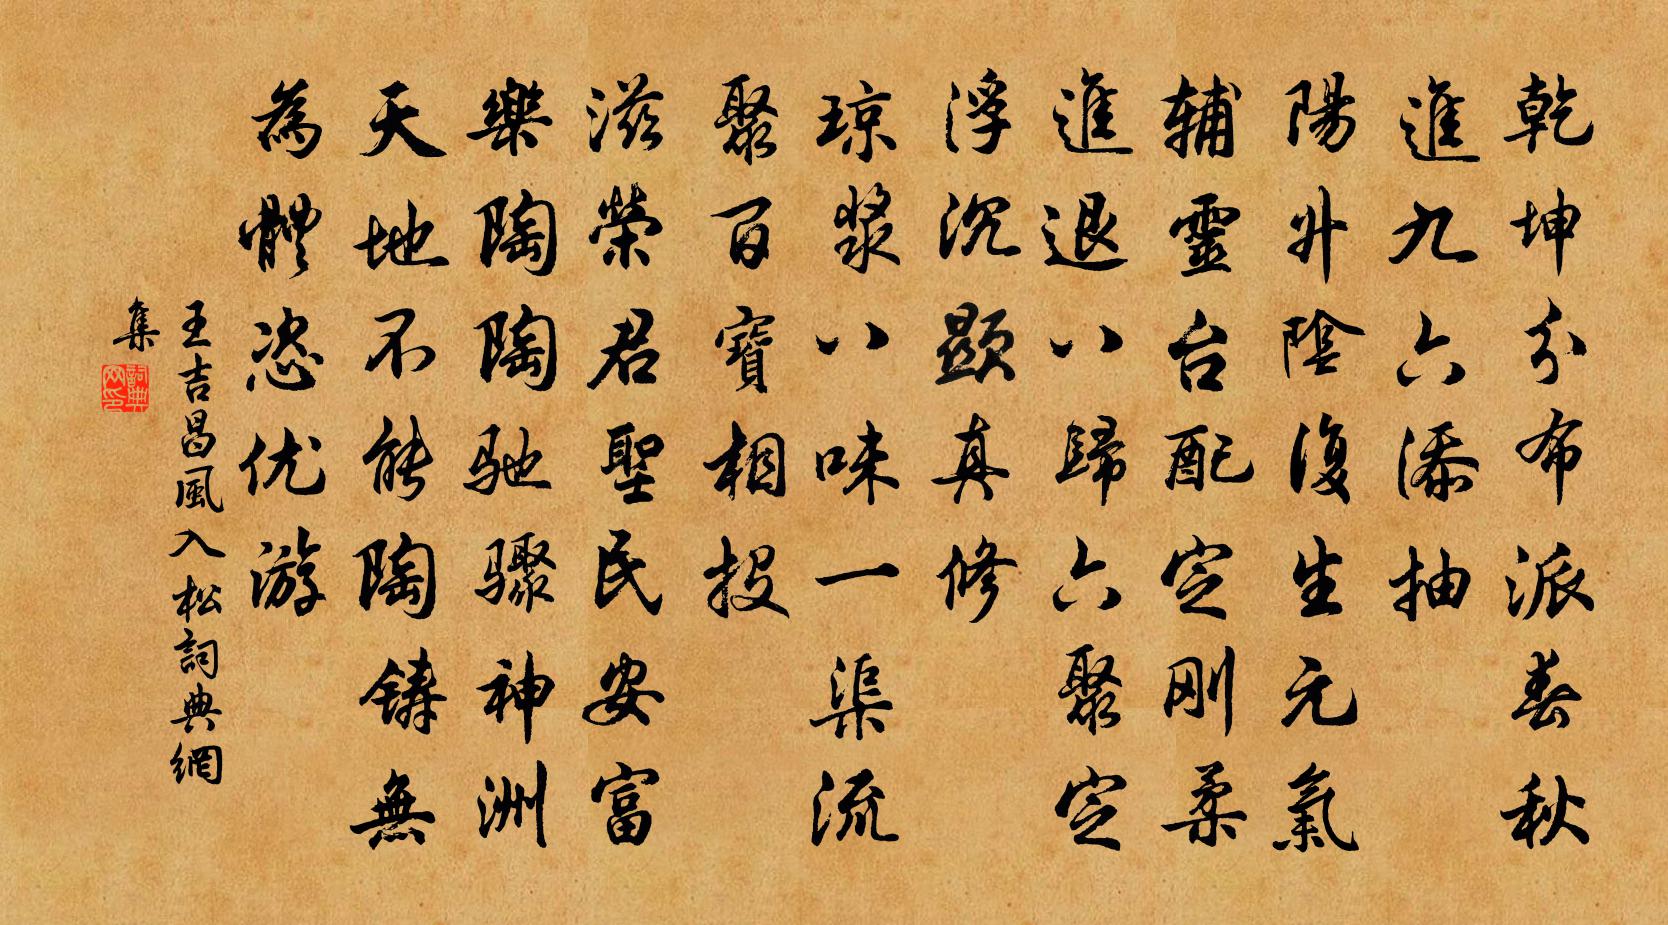 乾坤分布派春秋
進九六添抽
陽升陰復生元氣
辅靈台配定刚柔
進退八歸六聚定
浮沉顯真修
琼漿八味一渠流
聚百寶相投
滋榮君聖民安富
樂陶陶驰骤神洲
天地不能陶鑄無
為體恣优游
王吉昌風入松詞典網
集
詞典网印